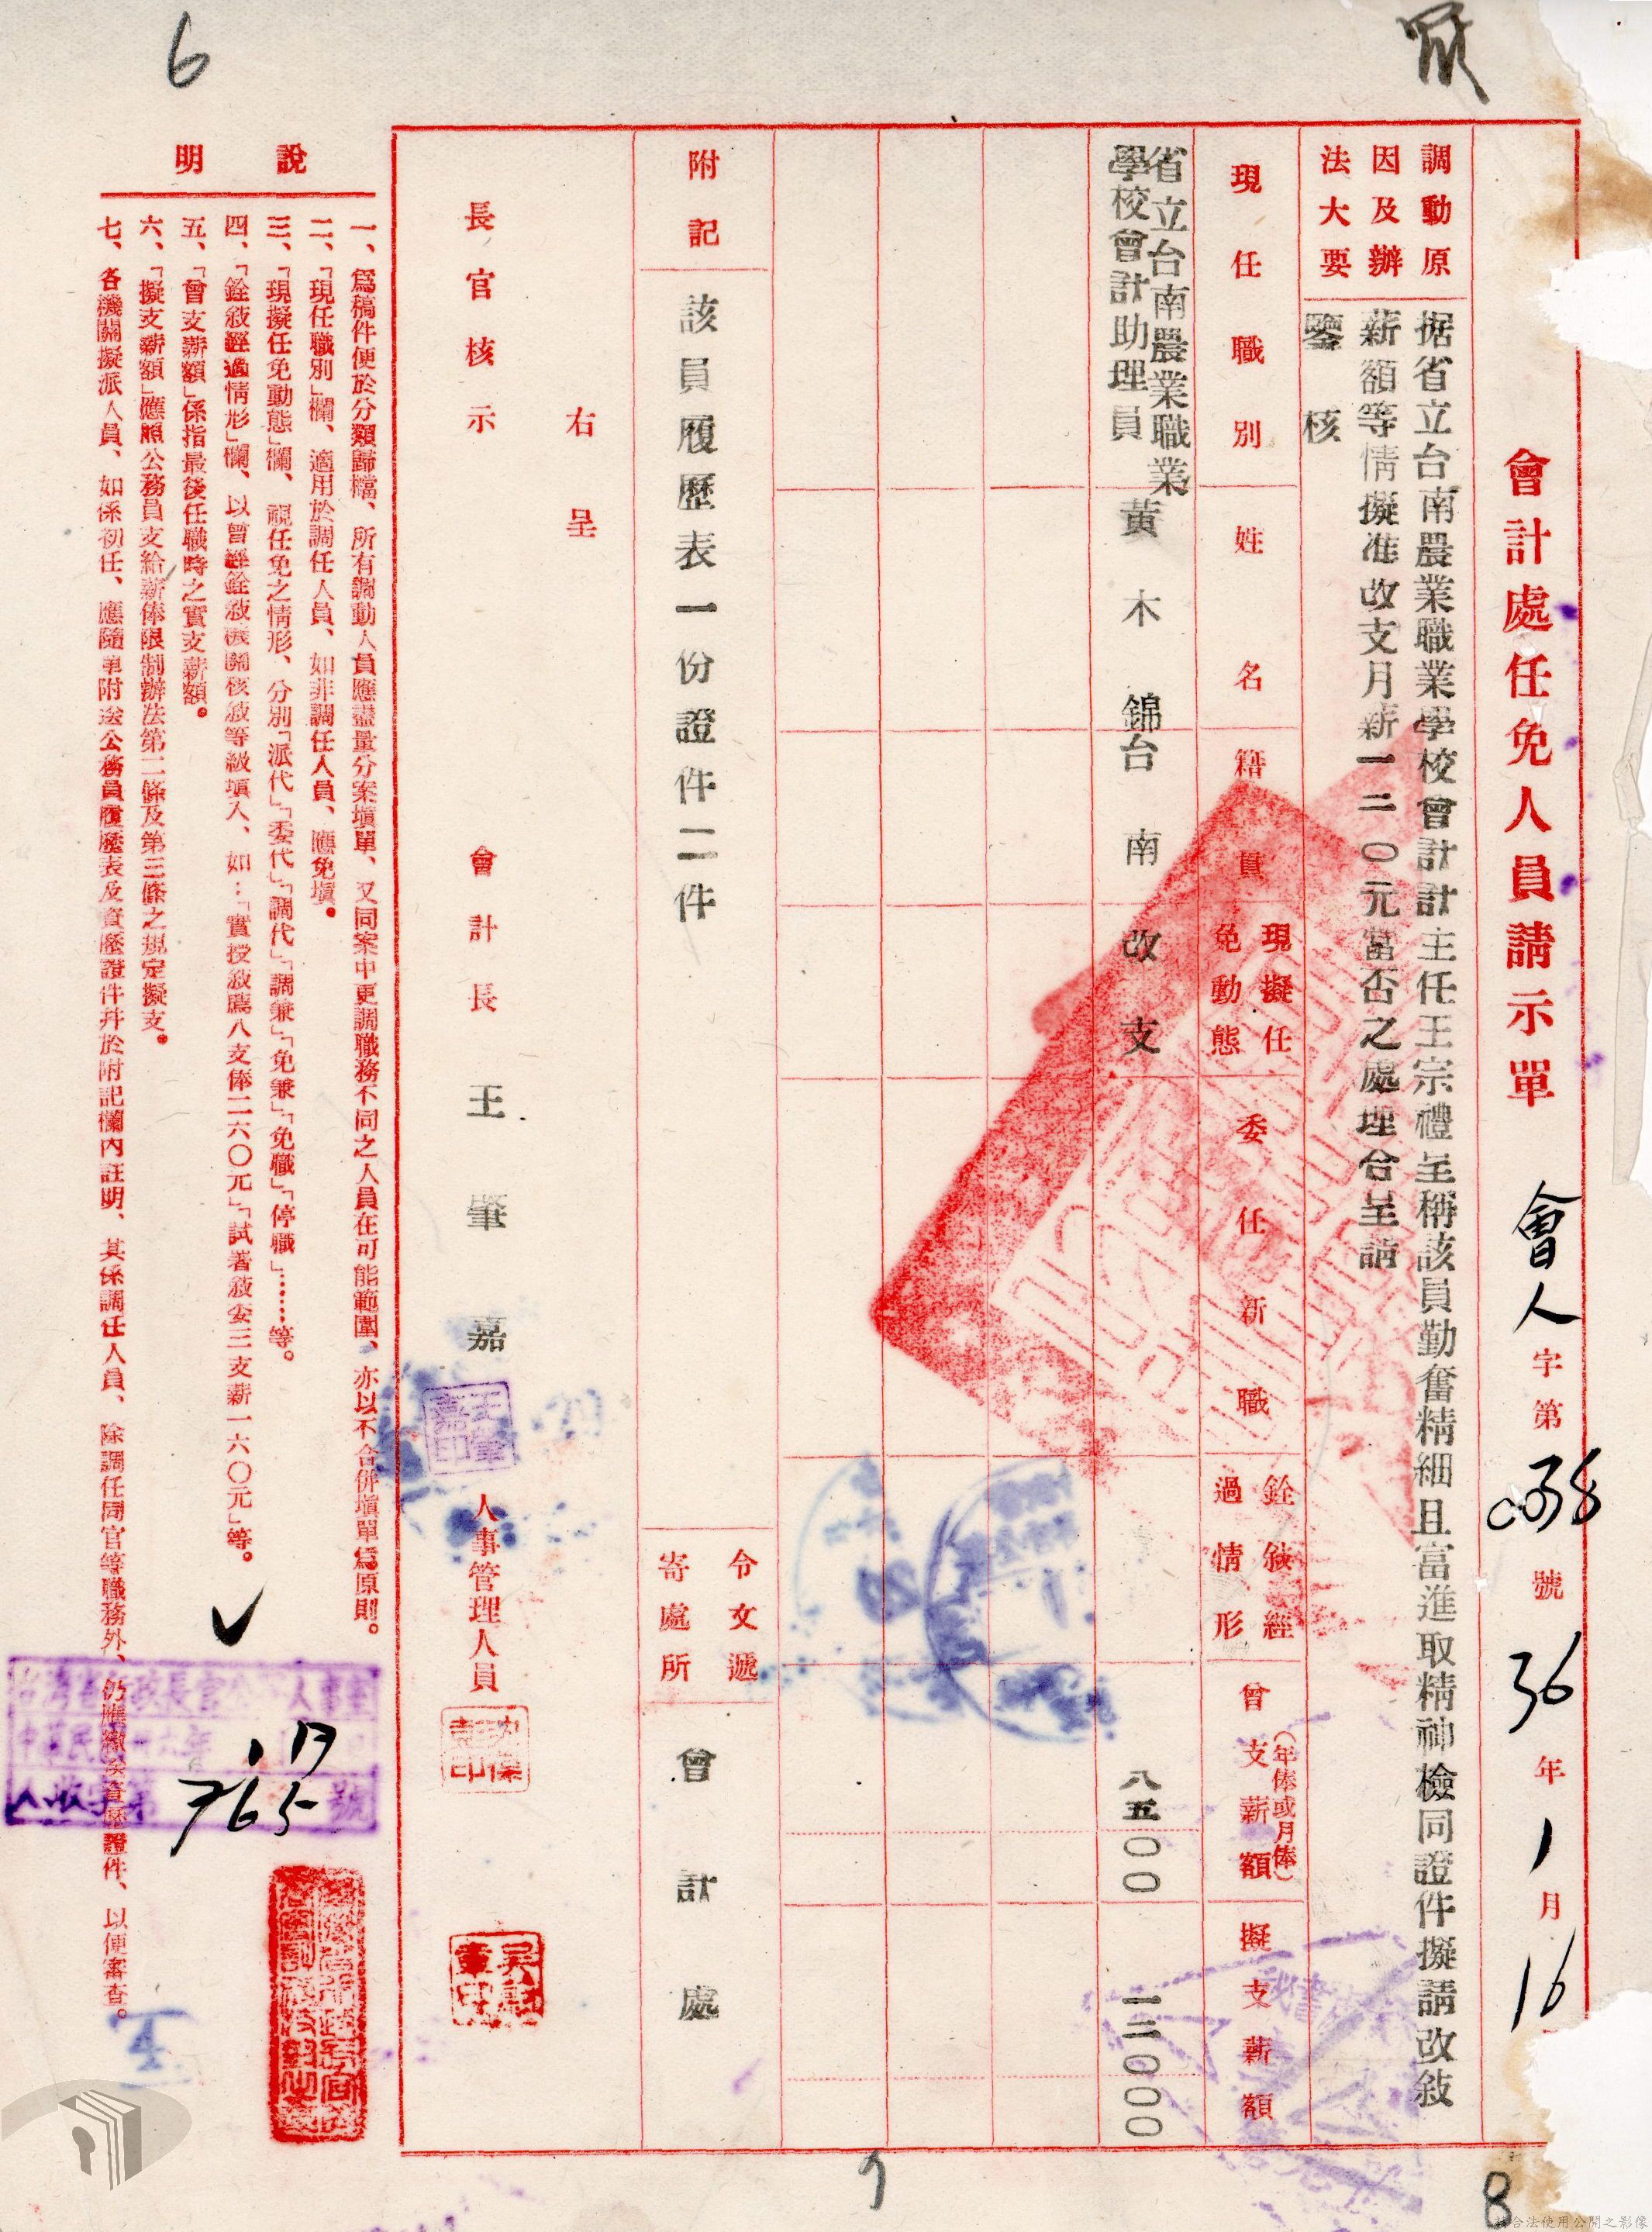 會計處任免人員請示單 會人字第0038號 36年1月16
調動原因及辦法大要
据省立台南農業職業學校會計計主任王宗禮呈稱該員勤奮精細且富進取精神檢同證件擬請改敍
薪額等情擬准改支月薪一二〇元當否之處理合呈請
鑒核
現任職別
姓名
籍貫
現擬任免動態
委任新職
銓敍經過情形
曾支薪額
(年俸或月俸)
擬支薪額
省立台南農業職業
學校會計助理員
黃木錦
台南
改支
八五〇〇
一二〇〇〇
附記
該員履歷表一份證件二件
令文遞寄處所
會計處
右呈
長官核示
會計長 王肇嘉
王肇嘉印
人事管理人員
說明
一、爲稿件便於分類歸檔、所有調動人員應盡量分案塡單、又同案中更調職務不同之人員在可能範圍、亦以不合併塡單爲原則。
二、「現任職別」欄、適用於調任人員、如非調任人員、應免塡。
三、「現擬任免動態」欄、視任免之情形、分別「派代」「委代」「調代」「調兼」「免兼」「免職」「停職」……等。
四、「銓敍經過情形」欄、以曾經銓敍機關核敍等級塡入、如：「實授敍薦八支俸二六〇元」「試著敍委三支薪一六〇元」等。
五、「曾支薪額」係指最後任職時之實支薪額。
六、「擬支薪額」應照公務員支給薪俸限制辦法第二條及第三條之規定擬支。
七、各機關擬派人員、如係初任、應隨單附送公務員履歷表及資歷證件幷於附記欄內註明、其係調任人員、除調任同官等職務外、仍應繳送資歷證件、以便審查。
765
6
8